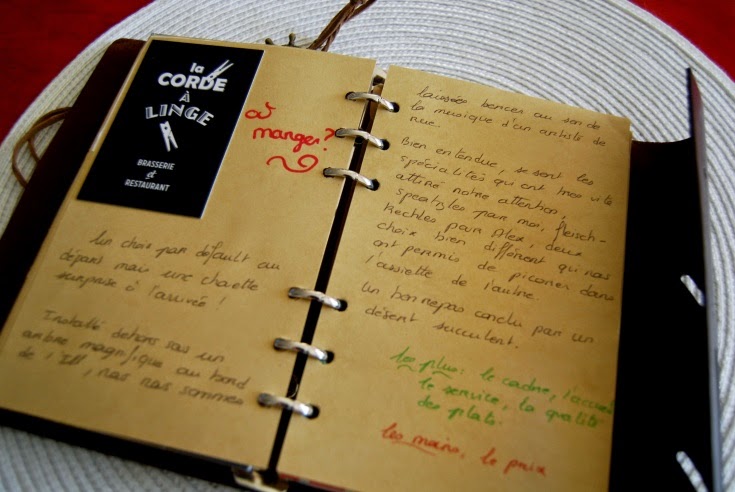 la
CORDE
À
LINGE
BRASSERIE
et
RESTAURANT
où
manger?
Un choix par défault au
départ mais une chouette
surprise à l'arrivée !
Installé dehors sous un
arbre magnifique au bord
de l'Ill, nous nous sommes
laissées bercer au son de
la musique d'un artiste de
rue.
Bien entendue, se sont les
spécialités qui ont très vite
attiré notre attention,
speatzles pour moi, fleisch-
kechles pour Alex, deux
choix bien différent qui nous
ont permis de picorer dans
l'assiette de l'autre.
Un bon repas conclu par un
désert succulent.
les plus: le cadre, l'accueil
le service, la qualité
des plats.
les moins, le prix